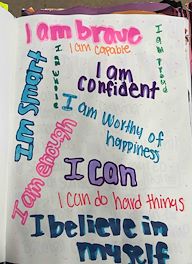 I am brave
I am capable
I am proud
I'm Smart
I am confident
I am worthy of
happiness
I am enough
I can
I can do hard things
I believe in
myself